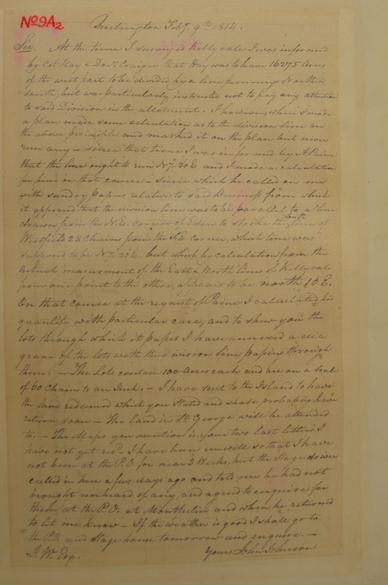 No 9A2
Burlington Feby. 9th 1814.
Sir. At the time I surveyed Kellyvale I was informed
by Col Hay & Doct. that Hay was to have 16275 Acres
of the west part to be divided by a line running North &
South, but was particularly instructed not to pay any attention
to said Division in the allotment. I however, when I made
a plan made some calculation as to the division line on
the above principle and marked it on the plan but never
run any - since that time I was informed by A Paine
that the line ought to run N 7. 20 E and I made a calculation
for him on that course - since which he called on me
with sundry Papers relative to said from which
it appeared that the division line was to be parallel to a line
drawn from the N.E. corner of Eden to the South line of
Westfield 28 Chains from the S.E. corner, which line was
supposed to be N 7. 20 E. but which by calculation from the
actual measurement of the East & North lines of Kellyvale
from one point to the other, appears to be north E.
On that course at the request of Paine I calculated the
quantity with particular care, and to show you the
lots through which it passes I have annexed a dia
gram of the lots with the division line passing through
them. - The Lots contain 100 Acres each and are on a scale
of 60 Chains to an Inch - I have sent to the Island to have
the land redeemed which you stated and shall probably have
return soon - The land in St George will be attended
to. - The Maps you mention in your two last letters I
have not yet recd. I have been unwell so that I have
not been at the P.O. for near 3 Weeks, but the Stage driver
called in here a few days ago and told me he had not
brought nor heard of any, and agreed to enquire for
them at the P.O. at Montpelier and when he returned
to let me know - If the weather is good I shall go to
the P.O. and Stage house tomorrow and enquire. -
J. W. Esq. Yours John Johnson